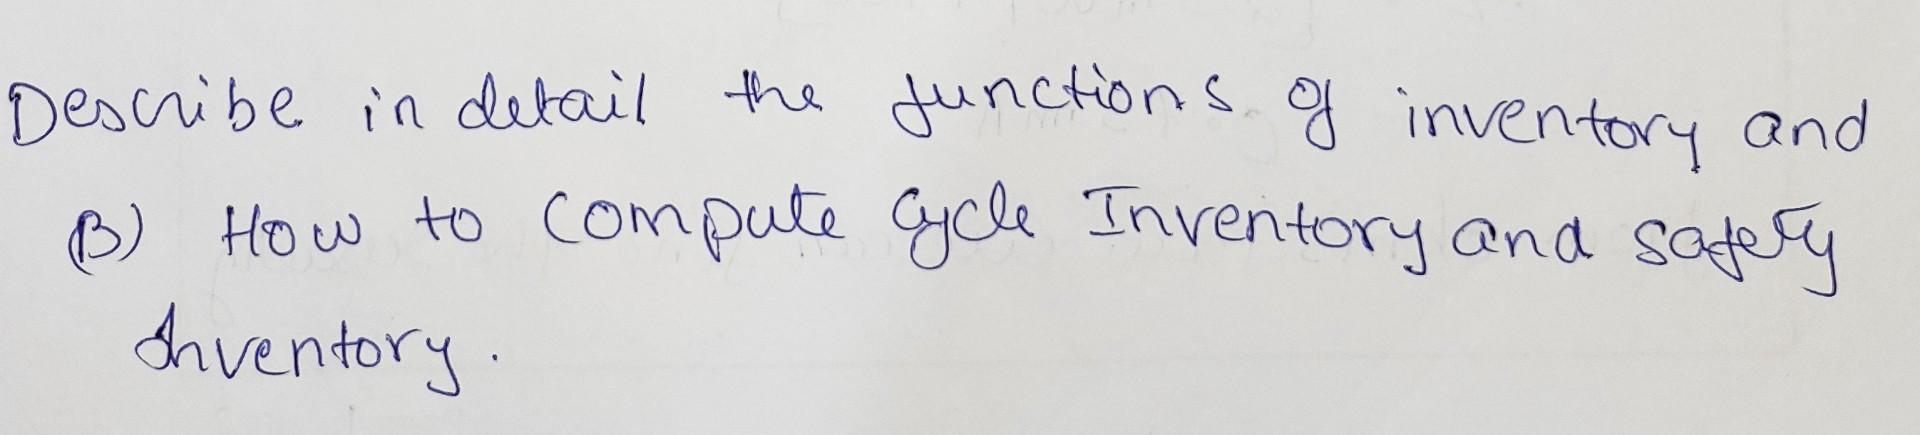 Describe in detail the functions of inventory and
B) How to compute Cycle Inventory and safety
Inventory.